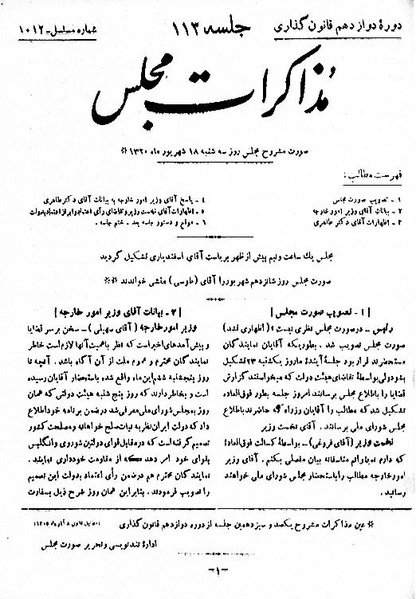 دورهٔ دوازدهم قانون گذاری
جلسه ۱۱۳
شماره مسلسل - ۱۰۱۲
مذاکرات مجلس
صورت مشروح مجلس روز سه شنبه ۱۸ شهریور ماه ۱۳۲۰ *
فهرست مطالب:
۱ - تصویب صورت مجلس
۲ - بیانات آقای وزیر امور خارجه
۳ - اظهارات آقای دکتر طاهری
۴ - پاسخ آقای وزیر امور خارجه به بیانات آقای دکتر طاهری
۵ - اظهارات آقای نخست وزیر و تقاضای رأی اعتماد و ابراز اعتماد بدولت
۶ - موقع و دستور جلسه بعد - ختم جلسه.
مجلس یک ساعت ونیم پیش از ظهر بریاست آقای اسفندیاری تشکیل گردید
صورت مجلس روز شانزدهم شهریور را آقای (طوسی) منشی خواندند *
[ ۱ - تصویب صورت مجلس ]
رئیس - در صورت مجلس نظری نیست؟ (اظهاری نشد)
صورت مجلس تصویب شد. بطوریکه آقایان نمایندگان
مستحضرند قرار بود جلسهٔ آیندهٔ ما روز یکشنبه ۲۳ تشکیل
بشود ولی بواسطهٔ تقاضای هیئت دولت که میخواستند گزارش
قضایا را باطلاع مجلس برسانند امروز جلسه بطور فوق العاده
تشکیل شد که مطالب را آقایان وزراء که حاضرند باطلاع
مجلس شورای ملی برسانند. آقای نخست وزیر
نخست وزیر (آقای فروغی) - بواسطهٔ کسالت فوق العادهٔ
که دارم میدانم متأسفانه بیان مفصلی بکنم. آقای وزیر
امور خارجه مطالب را باستحضار مجلس شورای ملی خواهند
رسانید.
[ ۲ - بیانات آقای وزیر امور خارجه ]
وزیر امور خارجه (آقای سهیلی) - سخن بر سر قضایا
و پیش آمدهای اخیر است که نظر باهمیت آنها لازم است خاطر
نمایندگان محترم و عموم ملت از آن آگاه باشد. آنچه تا
روز پنجشنبه ششم این ماه واقع شده باستحضار آقایان رسیده
است و بخاطر دارند که روز پنج شنبه هیئت دولتی که همان
روز بمجلس شورای ملی معرفی شد در ضمن برنامه خود اطلاع
داد که دولت ایران نظر به نیات صلح خواهانه و مصلحت کشور
تصمیم گرفته است که در مقابل قوای دولتین شوروی و انگلیس
بقوای خود امر دهد که از مقاومت خودداری نمایند.
نمایندگان محترم هم در ضمن رأی اعتماد بدولت این تصمیم
را تصویب فرمودند. بنابراین همان روز شرح ذیل بسفارت
* عین مذاکرات مشروح یکصد و سیزدهمین جلسه از دوره دوازدهم قانون گذاری
ادارهٔ تندنویسی و تحریر صورت مجلس
- ۱ -